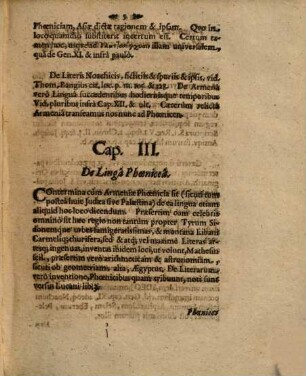 Phœniciam, Asiæ dictæ regionem & ipsam. Quo in-
loco primùm substiterit incertum est. Certum ta-
men hoc, nepotes illam universalem,
quâ de Gen. XI. & infra paulò.
De Literis Noachicis, fictitiis & spuriis & ipsis, vid.
Thom. Bangius cit. loc. p. m. 105. & 125. De Armenâ
verò Linguâ succedentibus hodiernisque temporibus
Vid. pluribus infra Cap. XII. & ult. Cæterùm relictâ
Armeniâ transeamus nos nunc ad Phœnicen.
Cap. III.
De Linguâ Phœniceâ.
COntermina cùm Armeniæ Phœnicia sit (sicuti sum
post hâ huic Judæa sive Palæstina) de eâ linguâ etiam
aliquid hoc loco dicendum. Præsertim cùm celebris
omninò sit hæc regio non tantùm propter Tyrum Si-
donemque urbes famigeratissimas, & maximè Libani
Carmelique huic feraces, sed & atq; vel maximè Literas ar-
teisq; ingenuas, inventas ibidem loci, ut volunt, Mathesis
scil., præsertim verò arithmeticam & astronomiam,
sicuti ob geometriam aliis, Ægyptus. De Literarum
verò inventione, Phœnicibus quam tribuunt, noti sunt
versus Lucani lib. 3.
Phœnices